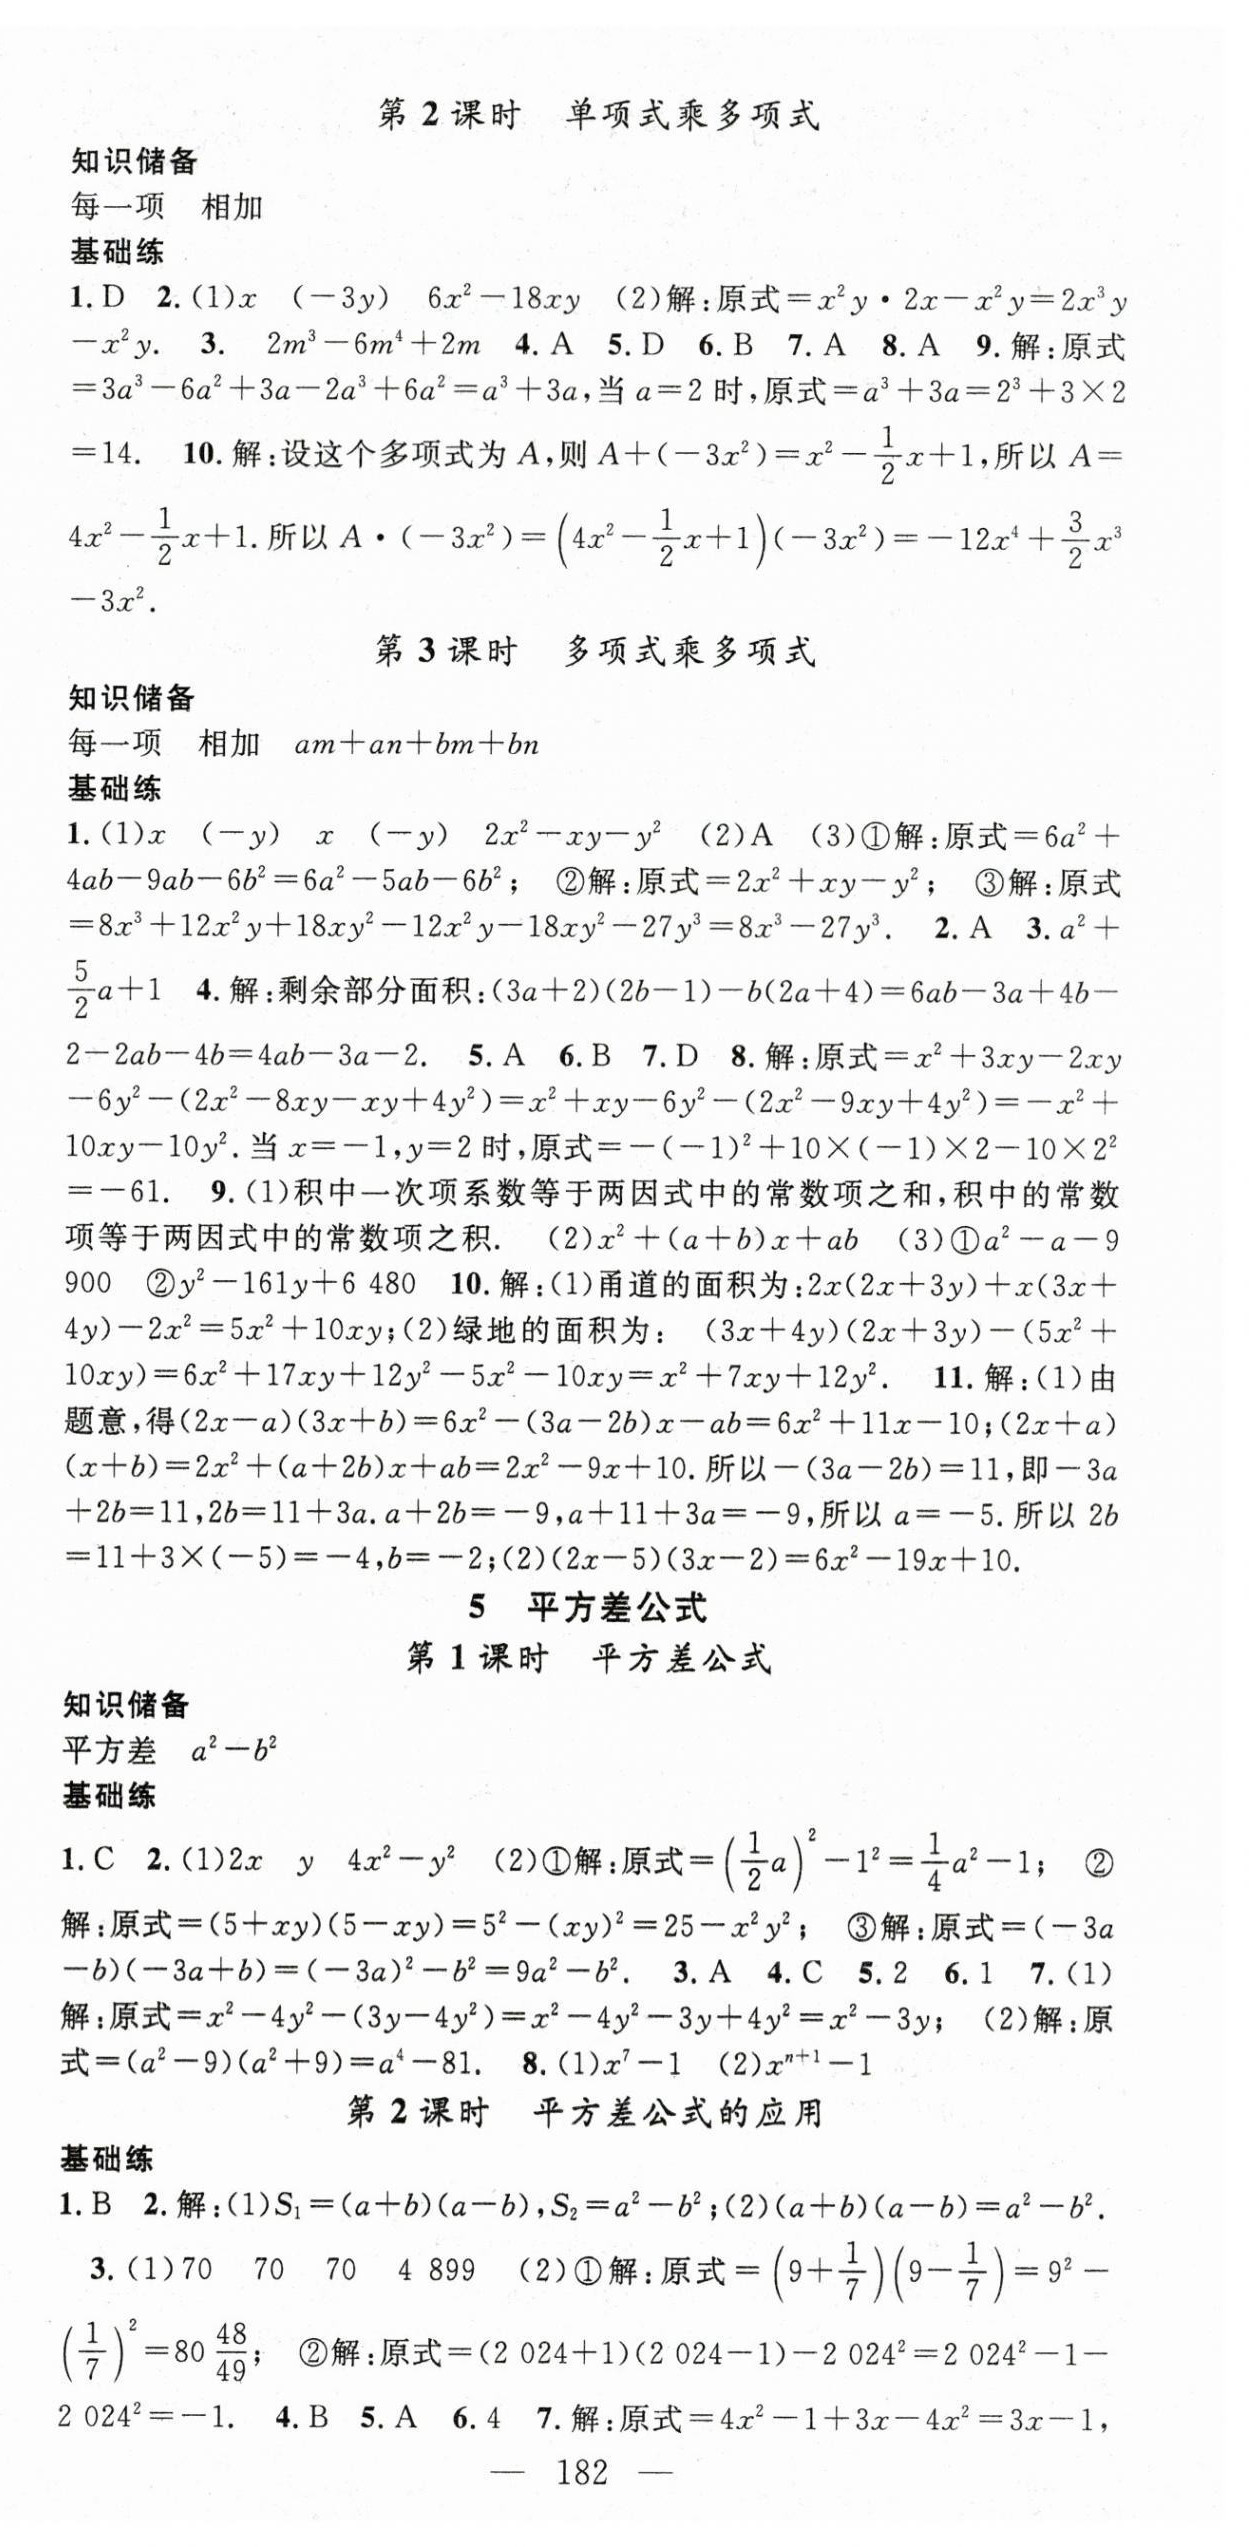 第2课时 单项式乘多项式
知识储备
每一项 相加
基础练
1. D 2. (1)x (－3y) 6x²－18xy (2)解:原式＝x²y·2x－x²y＝2x³y
－x²y. 3. 2m³－6m⁴＋2m 4. A 5. D 6. B 7. A 8. A 9. 解:原式
＝3a³－6a²＋3a－2a³＋6a²＝a³＋3a,当 a＝2 时,原式＝a³＋3a＝2³＋3×2
＝14. 10. 解:设这个多项式为 A,则 A＋(－3x²)＝x²－1/2x＋1,所以 A＝
4x²－1/2x＋1. 所以 A·(－3x²)＝(4x²－1/2x＋1)(－3x²)＝－12x⁴＋3/2x³
－3x².
第3课时 多项式乘多项式
知识储备
每一项 相加 am＋an＋bm＋bn
基础练
1. (1)x (－y) x (－y) 2x²－xy－y² (2)A (3)①解:原式＝6a²＋
4ab－9ab－6b²＝6a²－5ab－6b²; ②解:原式＝2x²＋xy－y²; ③解:原式
＝8x³＋12x²y＋18xy²－12x²y－18xy²－27y³＝8x³－27y³. 2. A 3. a²＋
5/2a＋1 4. 解:剩余部分面积:(3a＋2)(2b－1)－b(2a＋4)＝6ab－3a＋4b－
2－2ab－4b＝4ab－3a－2. 5. A 6. B 7. D 8. 解:原式＝x²＋3xy－2xy
－6y²－(2x²－8xy－xy＋4y²)＝x²＋xy－6y²－(2x²－9xy＋4y²)＝－x²＋
10xy－10y². 当 x＝－1,y＝2 时,原式＝－(－1)²＋10×(－1)×2－10×2²
＝－61. 9. (1)积中一次项系数等于两因式中的常数项之和,积中的常数
项等于两因式中的常数项之积. (2)x²＋(a＋b)x＋ab (3)①a²－a－9
900 ②y²－161y＋6 480 10. 解:(1)甬道的面积为:2x(2x＋3y)＋x(3x＋
4y)－2x²＝5x²＋10xy;(2)绿地的面积为: (3x＋4y)(2x＋3y)－(5x²＋
10xy)＝6x²＋17xy＋12y²－5x²－10xy＝x²＋7xy＋12y². 11. 解:(1)由
题意,得(2x－a)(3x＋b)＝6x²－(3a－2b)x－ab＝6x²＋11x－10;(2x＋a)
(x＋b)＝2x²＋(a＋2b)x＋ab＝2x²－9x＋10. 所以－(3a－2b)＝11,即－3a
＋2b＝11,2b＝11＋3a. a＋2b＝－9,a＋11＋3a＝－9,所以 a＝－5. 所以 2b
＝11＋3×(－5)＝－4,b＝－2;(2)(2x－5)(3x－2)＝6x²－19x＋10.
5 平方差公式
第1课时 平方差公式
知识储备
平方差 a²－b²
基础练
1. C 2. (1)2x y 4x²－y² (2)①解:原式＝(1/2a)²－1²＝1/4a²－1; ②
解:原式＝(5＋xy)(5－xy)＝5²－(xy)²＝25－x²y²; ③解:原式＝(－3a
－b)(－3a＋b)＝(－3a)²－b²＝9a²－b². 3. A 4. C 5. 2 6. 1 7. (1)
解:原式＝x²－4y²－(3y－4y²)＝x²－4y²－3y＋4y²＝x²－3y; (2)解:原
式＝(a²－9)(a²＋9)＝a⁴－81. 8. (1)x⁷－1 (2)xⁿ⁺¹－1
第2课时 平方差公式的应用
基础练
1. B 2. 解:(1)S₁＝(a＋b)(a－b),S₂＝a²－b²;(2)(a＋b)(a－b)＝a²－b².
3. (1)70 70 70 4 899 (2)①解:原式＝(9＋1/7)(9－1/7)＝9²－
(1/7)²＝80 48/49; ②解:原式＝(2 024＋1)(2 024－1)－2 024²＝2 024²－1－
2 024²＝－1. 4. B 5. A 6. 4 7. 解:原式＝4x²－1＋3x－4x²＝3x－1,
— 182 —